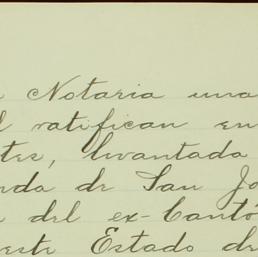 Notaria una
ratifican en
tes, levantada
nda de San Jo
del ex-Cantó
este Estado de